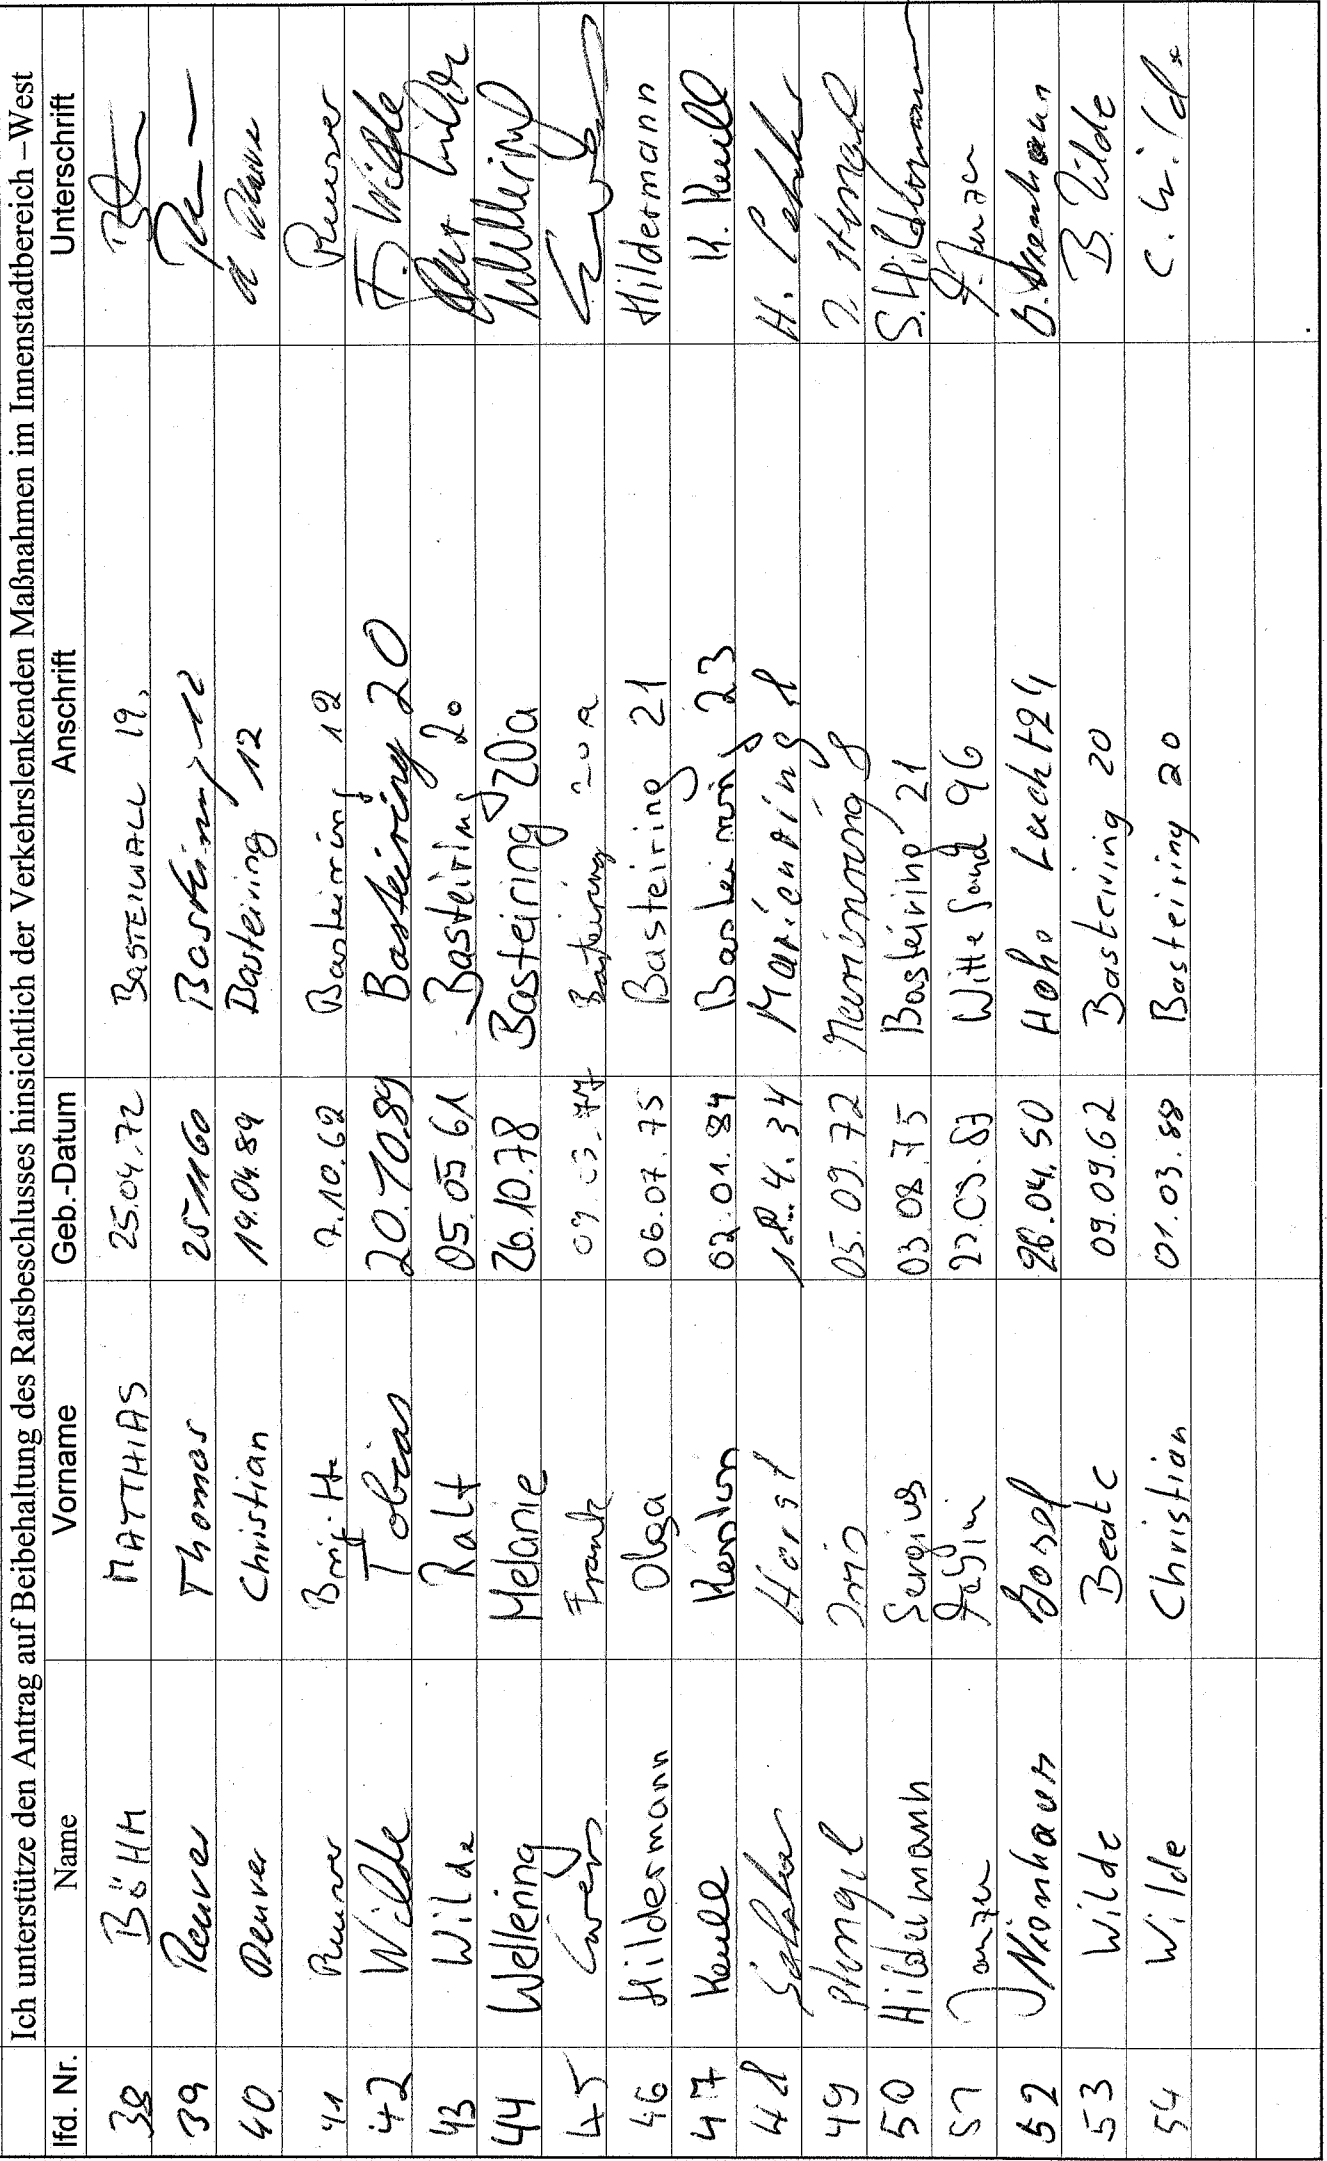 Ich unterstütze den Antrag auf Beibehaltung des Ratsbeschlusses hinsichtlich der Verkehrslenkenden Maßnahmen im Innenstadtbereich –West
lfd. Nr. Name Vorname Geb.-Datum Anschrift Unterschrift
38 BÖHM MATTHIAS 25.04.72 BASTEIWALL 19,
39 Thomas 251160 12
40 Christian 19.04.89 Basteiring 12
41 Brigitte 7.10.62 Basteiring 12
42 Wilde Tobias 20.10.89 Basteiring 20 T. Wilde
43 Wilde Ralf 05.05.61 Basteiring 20
44 Wellering Melanie 26.10.78 Basteiring 20a Wellering
45 Frank 09.03.77 Basteiring 20a
46 Hildermann Olga 06.07.75 Basteiring 21 Hildermann
47 Keule Kerstin 02.01.84 Basteiring 23 K. Keule
48 Horst 4.34 Marienring 8 H.
49 Iris 05.09.72 Marienring 8
50 Hildermann Sergius 03.08.75 Basteiring 21 S. Hildermann
51 Janzen Witte Sand 96 Janzen
52 .04.50 Hohe Lucht 24
53 Wilde Beate 09.09.62 Basteiring 20 B. Wilde
54 Wilde Christian 01.03.88 Basteiring 20 C. Wilde